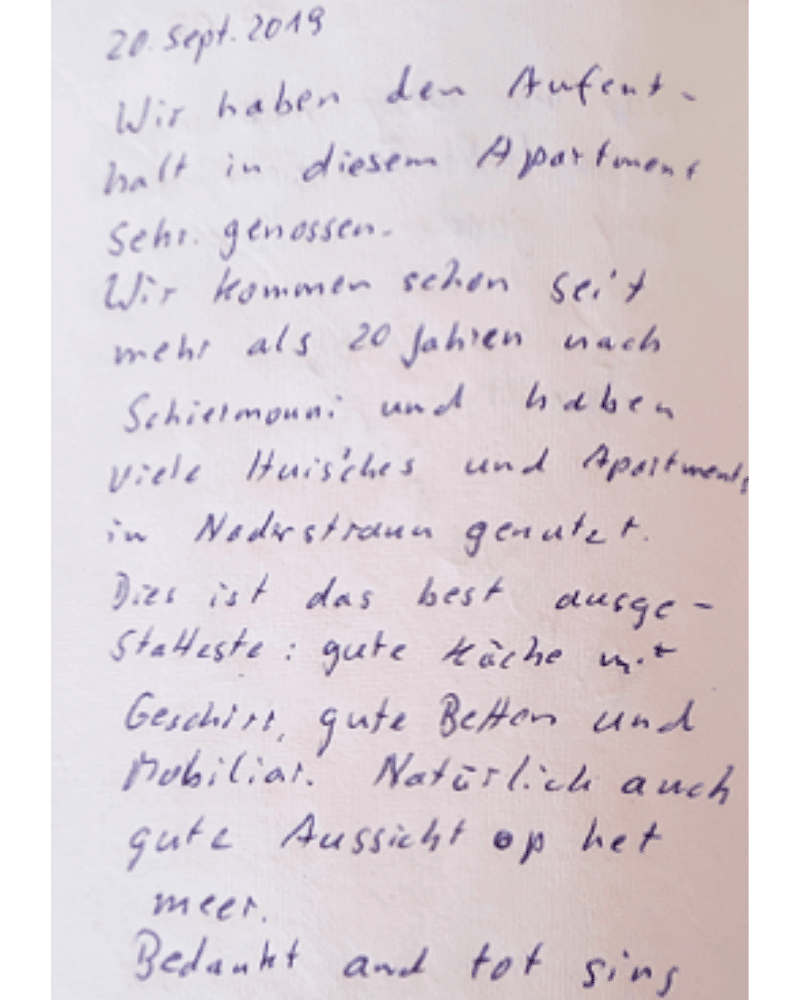 20. Sept. 2019
Wir haben den Aufent-
halt in diesem Apartment
Sehr genossen.
Wir kommen schon seit
mehr als 20 Jahren nach
Schiermonni und haben
viele Huisches und Apartments
in Noderstraun genutzt.
Dies ist das best ausge-
Statteste: gute Küche mit
Geschirr, gute Betten und
Mobiliar. Natürlich auch
gute Aussicht op het
meer.
Bedankt and tot sins